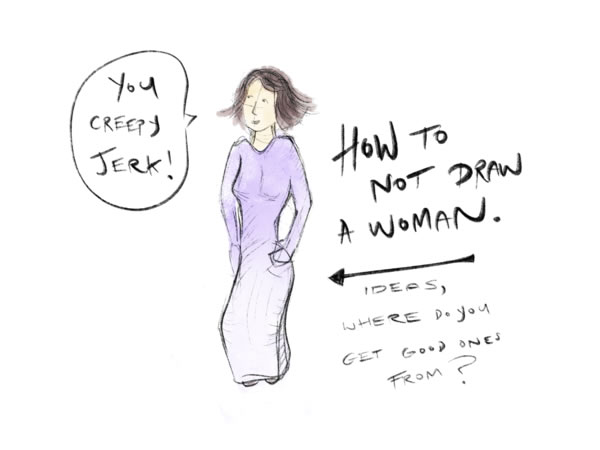 YOU
CREEPY
JERK!
HOW TO
NOT DRAW
A WOMAN.
IDEAS,
WHERE DO YOU
GET GOOD ONES
FROM?